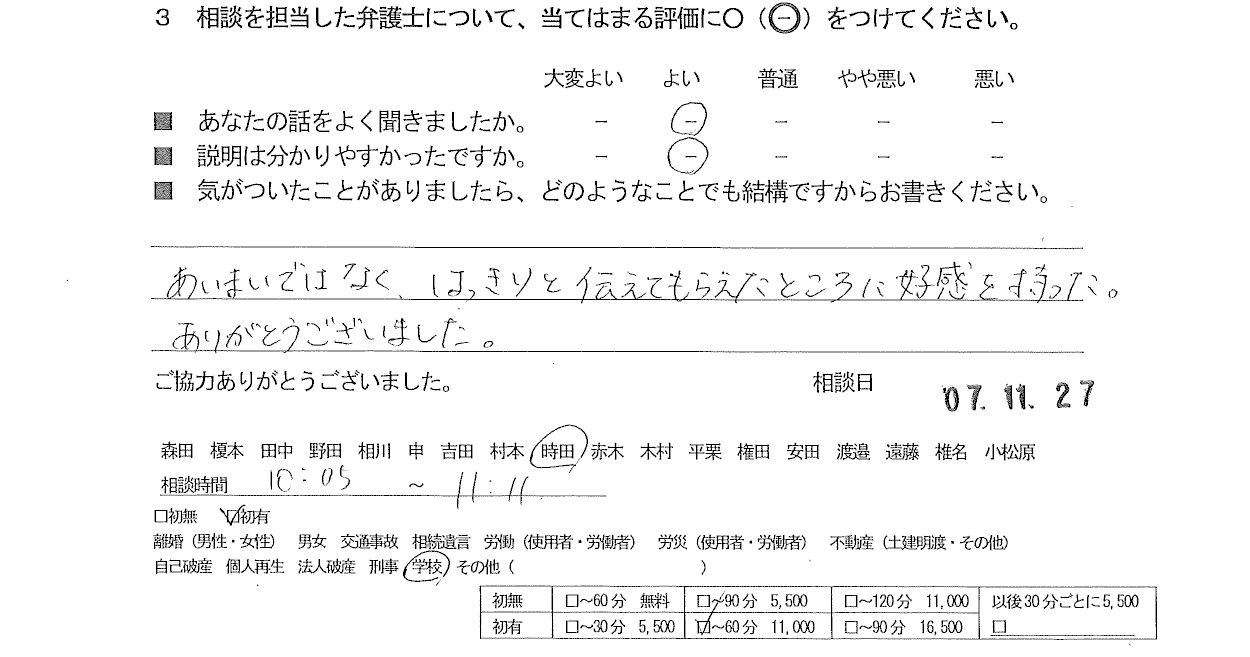 3 相談を担当した弁護士について、当てはまる評価に○(⊖)をつけてください。
大変よい よい 普通 やや悪い 悪い
■ あなたの話をよく聞きましたか。 － － － － －
■ 説明は分かりやすかったですか。 － － － － －
■ 気がついたことがありましたら、どのようなことでも結構ですからお書きください。
あいまいではなく、はっきりと伝えてもらえたところに好感を持った。
ありがとうございました。
ご協力ありがとうございました。 相談日 '07.11.27
森田 榎本 田中 野田 相川 申 吉田 村本 時田 赤木 木村 平栗 権田 安田 渡邉 遠藤 椎名 小松原
相談時間 10:05 ～ 11:11
□初無 ☑初有
離婚（男性・女性） 男女 交通事故 相続遺言 労働（使用者・労働者） 労災（使用者・労働者） 不動産（土建明渡・その他）
自己破産 個人再生 法人破産 刑事 学校 その他（ ）
初無 □～60分 無料 □～90分 5,500 □～120分 11,000 以後30分ごとに5,500
初有 □～30分 5,500 ☑～60分 11,000 □～90分 16,500 □